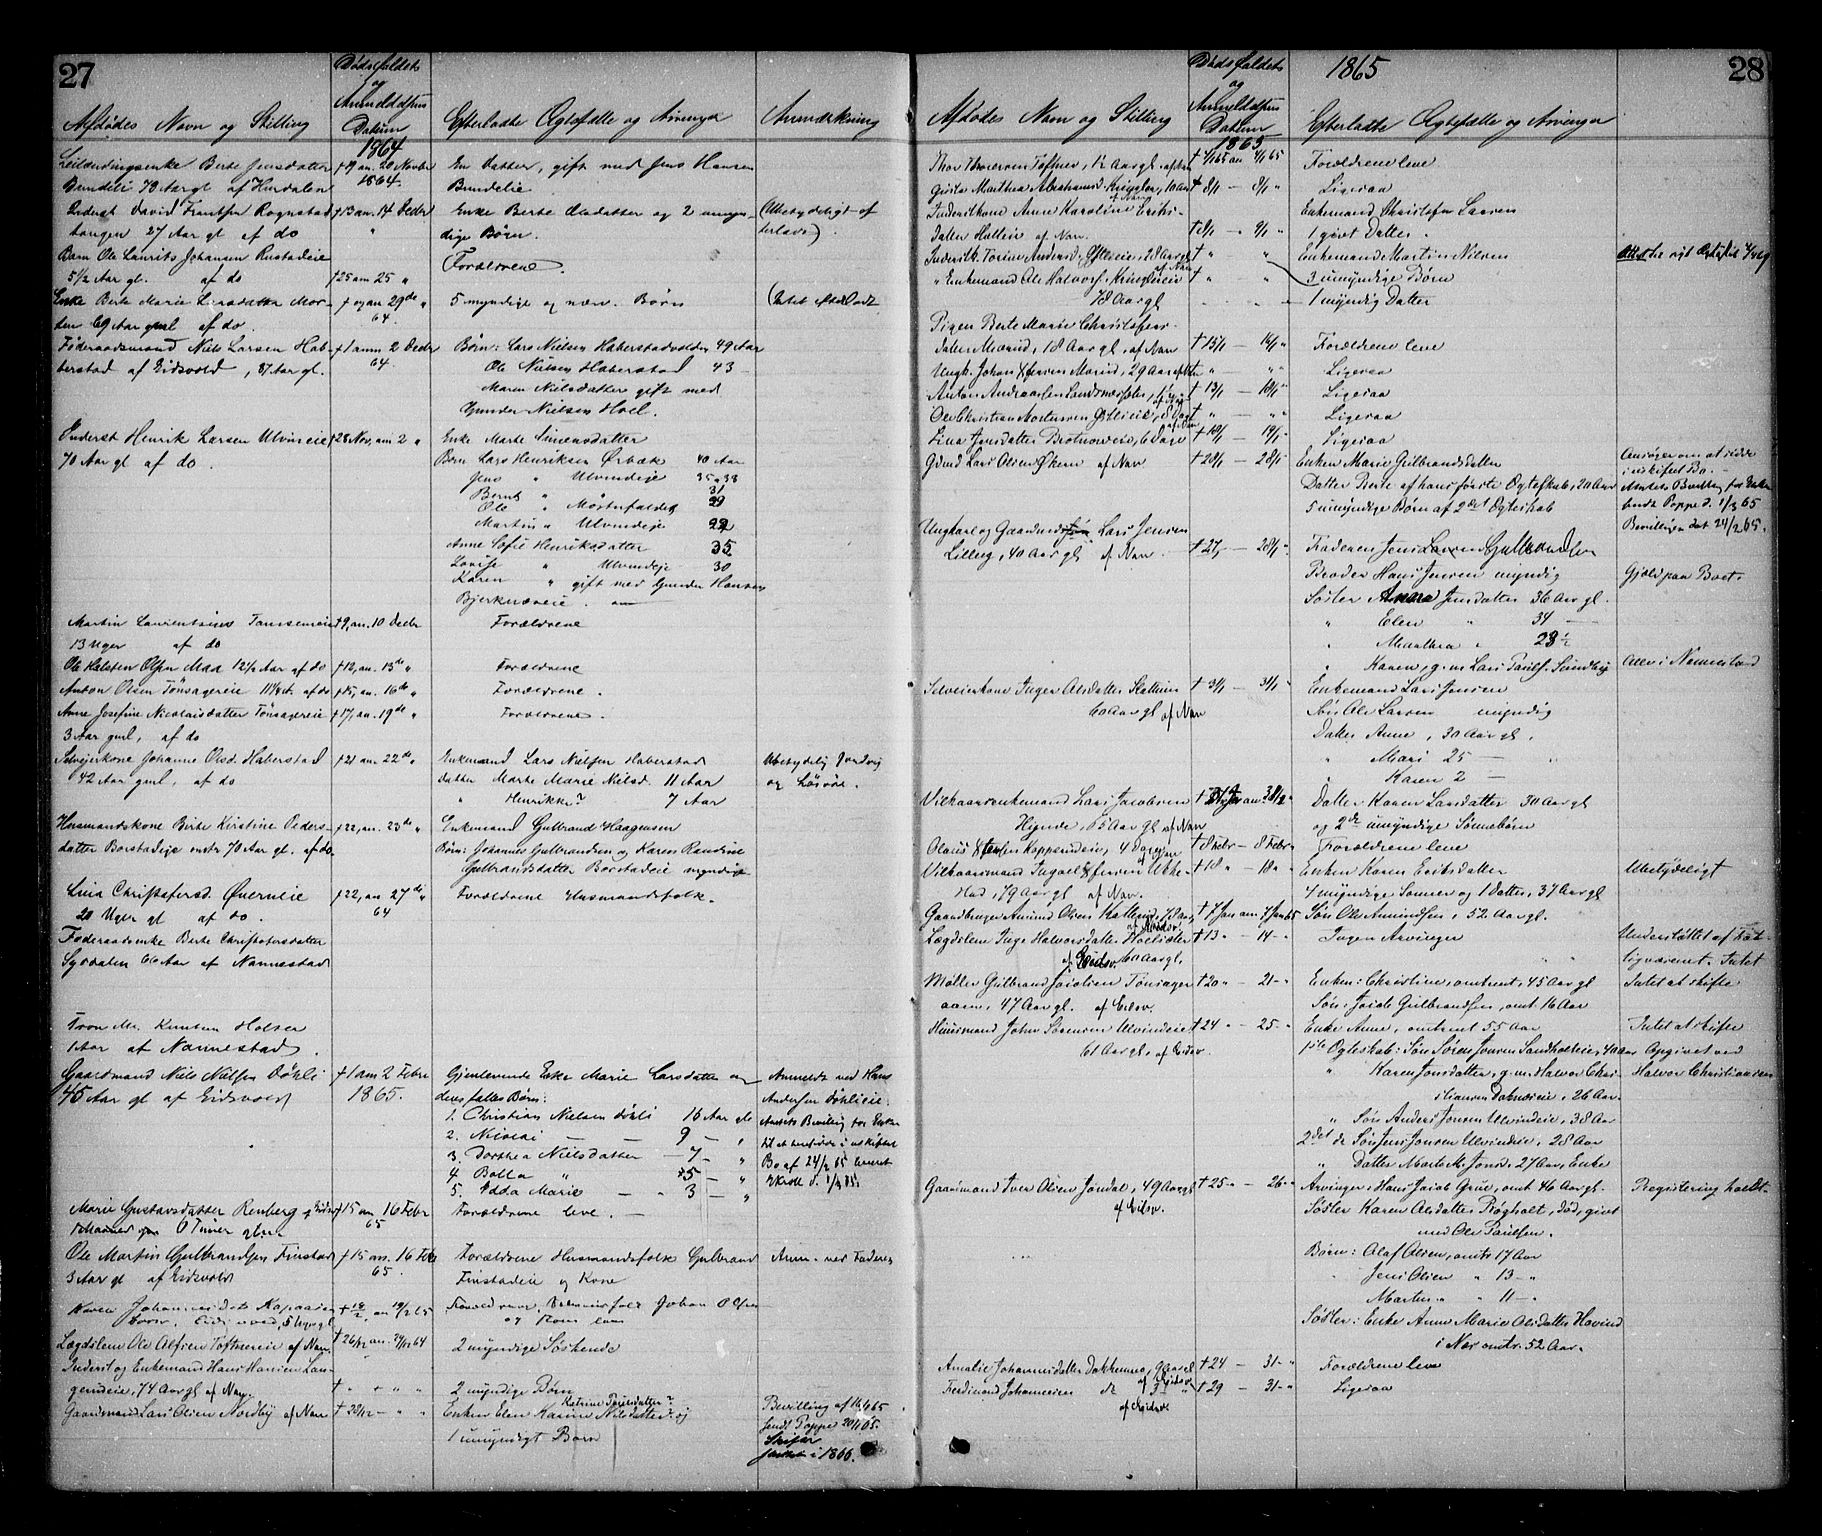 27
Dødsfaldets
og
Anmeldelsens
Afdødes Navn og Stilling Datum Efterladte Ægtefælle og Arvinger Anmærkning
1864
Leilændingsenke Berte Jensdatter †9 an. 20 Novbr En datter, gift med Jens Hansen
Bundeli 70 Aar gl. af Hurdalen 1864. Bundelie
Inderst David Frantsen Rognstad †13 an. 14 Decbr Enke Berte Oladatter og 2 umyn- Ubetydeligt ef-
haugen 27 Aar gl af do " dige Børn. terladt
Barn Ole Laurits Johansen Rustadeie Forældrene.
5½ Aar gl. af do †25 am 25 "
Enke Berte Marie Larsdatter Mor- † og am 29de " 5 myndige og nærv. Børn Intet efterladt
ten 69 Aar gml af do. 64.
Føderaadsmand Niels Larsen Ha- †1 anm 2 Decbr Børn: Lars Nielsen Haberstadvolden 49 Aar
berstad af Eidsvold, 87 Aar gl. 64. Ole Nielsen Haberstad 43 -
Maren Nielsdatter gift med
Gunder Nielsen Hoel.
Inderst Henrik Larsen Ulvineie †28 Nov, am 2 " Enke Marte Simensdatter
70 Aar gl af do. Børn Lars Henriksen Ørbæk 40 Aar
Jens " Ulvindeje 35 a 38
Bernt " " 31
Ole " Mostufaldet 29
Martin " Ulvindeje 22
Anne Sofie Henriksdatter 35
Lovise " Ulvindeje 30
Karen " gift med Gunder Hansen
Bjerknæseie.
Martin Laurentsius †9, an. 10 Decbr Forældrene
13 Uger af do
Ole Halsten Olsen Maa 12½ Aar af do †12, an. 13de " Forældrene
Anton Olsen Tönsagereie af do †15, an. 16de " Forældrene.
Anne Josefine Nicolaisdatter Tönsagereie †17, an. 19de " Forældrene.
3 Aar gml, af do
Selvejerkone Johanne Olsd. Haberstad †21 an. 22de " Enkemand Lars Nielsen Haberstad Ubetydelig Jordvej
42 Aar gml, af do datter Marte Marie Nielsd. 11 Aar og Løsøre.
" Henrikke? 7 Aar
Husmandskone Birte Kirstine Peders- †22, an. 23de " Enkemand Gulbrand Haagensen
datter Borstadeje omtr 70 Aar gl. af do Børn: Johannes Gulbrandsen og Karen Randine
Gulbrandsdatter Borstadeie myndige
Lina Christofersd. Øverneie †22, an 27de " Forældrene Husmandsfolk.
20 Uger gl af do. 64
Føderaadsenke Berte Christofersdatter
Syrdalen 66 Aar af Nannestad
Tron Mr. Knutsen Holser
1 Aar af Nannestad.
Gaardmand Niels Nielsen Døhli †1 am 2 Febr Gjenlevende Enke Marie Larsdatter og Anmeldt ved Hans
45 Aar gl af Eidsvold 1865. deres fælles Børn: Andersen Döhlieie.
1. Christian Nielsen Döhli 16 Aar gl. Amtets Bevilling for Enken
2. Nicolai — — 9 — " til at hensidde i uskiftet
3. Dorthea Nielsdatter — 7 — " Bo af 24/2 65 leveret
4. Bolla " 5 — "
5. Edda Marie — " 3 — "
Marie Gustavsdatter Renberg †15 am 16 Febr Forældrene leve.
6 Timer gl 65
Ole Martin Gulbrandsen Finstad †15 an. 16 Febr Forældrene Husmandsfolk Gulbrand Anm. ved Faderen
3 Aar gl af Eidsvold 65. Finstadeie og Kone
Karen Johannesdatr an 19/2 65 Johan Olsen
og Kone leve
Lægdslem Ole Olsen Toftnereie af Nan. †26/12 an. 29/12 64 2 myndige Søskende
Inderst og Enkemand Hans Hansen Lan-
gerudeie, 74 Aar gl af Nan. † " " " 2 myndige Børn
Katrine Paulsdatter?
Gaardmand Lars Olsen Nordby af Nan †28/12 — " " Enken Elen Karine Nilsdatter og Bevilling af 16/4 65
1 umyndigt Barn sendt Poppe 20/4 65.
Skifte
i 1866.
28
Dødsfaldets 1865
og
Anmeldelsens
Afdødes Navn og Stilling Datum Efterladte Ægtefælle og Arvinger
1865
Thor Thoresen Tøfthus, 1½ Aar gl. af Nan †4/1 65 an 4/1 65 Forældrene leve
Gusta Marthea Abrahamsd. Kringler, 10 Aar †8/1 — 8/1 " Ligesaa
af Nan
Inderstkone Anne Karoline Eriks- Enkemand Christofer Larsen
datter Holteie af Nan. †8/1 — 9/1 " 1 givt Datter.
Inderstk. Torine Andersd. Østleie, 28 Aar gl † " " Enkemand Martin Nilsen
3 umyndige Børn
" Enkemand Ole Halvors. Kringleeie † " "
78 Aar gl 1 myndig Datter
Pigen Berte Marie Christofers-
datter Mærud, 18 Aar gl, af Nan †15/1 — 16/1 " Forældrene leve
Ungk. Johan Jensen Mærud, 29 Aar af Nan † " — " Ligesaa
Anton Andreassen †13/1 — 18/1 " Ligesaa
Ole Christian Mortensen Østleie, 8 Dage † " " Ligesaa
Lina Jensdatter Brotnoreie, 6 Dage †18/1 — 19/1 " Ligesaa
Gdmd Lars Olsen Økern af Nan †20/1 — 28/1 Enken Marie Gulbrandsdatter Ansøger om at sidde
i uskiftet Bo. —
Datter Berte af hans første Ægteskab, 20 Aar Amtets Bevilling for Enken
5 umyndige Børn af 2det Ægteskab sendt Poppe d. 1/3 65
Bevillingen dat 24/2 65.
Ungkarl og Gaardmd Lars Jensen
Lilleng, 40 Aar gl, af Nan. †27/1 — 28/1 Faderen Jens Gulbrandsen
Broder Hans Jensen myndig Gjæld paa Boet.
Søster Anna Jensdatter 36 Aar gl.
" Elen " 34 —
" Marthea " 23½
" Karen, g. m. Lars Pauls. Sundbye Alle i Nannestad
Selveierkone Inger Olsdatter Slattum †31/1 — 31/1 " Enkemand Lars Jensen
60 Aar gl af Nan Søn Ole Larsen myndig
Datter Anne, 30 Aar gl,
" Mari 25 — "
" Karen 2 —
Vilkaarsenkemand Lars Jacobsen † Datter Karen Larsdatter 30 Aar gl
65 Aar gl af Nan og 2de umyndige Sønnebørn
Olaus Koppereie, 4 Dage †8 Febr — 8 Febr — Forældrene leve
Vilkaarsmand †18 " — 18 " Enken Karen Eriksdatter Ubetydeligt
79 Aar gl. af Nan. 4 myndige Sønner og 1 Datter, 37 Aar gl
Gaardbruger Amund Olsen †7 Jan am 7 Jan 65 Søn Ole Amundsen, 52 Aar gl.
Lægdslem Inge Halvorsdatter Hoelsæter †13 " — 14 — " Ingen Arvinger Understøttet af Fat-
af Eidsv. 60 Aar gl. tigvæsenet. Intet
Møller Gulbrand Jacobsen Tönsager †20 " — 21 — " Enken: Christine, omtrent 45 Aar gl Intet at skifte
aaen, 47 Aar gl. af Eidsv. Søn: Jacob Gulbrandsen, omt 16 Aar
Huusmand John Sørensen Ulvindeie †24 " — 25 — " Enke Anne, omtrent 55 Aar Intet at skifte
61 Aar gl. af Eidsv. 1ste Ægteskab: Søn Søren Jonsen Sandholteie, 40 Aar Opgivet ved
" Karen Jonsdatter, g. m. Halvor Chri- Halvor Christiansen
stiansen Dokneseie, 26 Aar
" Søn Anders Jonsen Ulvindeie, 38 Aar
2det do Søn Jens Jonsen Ulvindeie, 28 Aar
" Datter Marte M. Jonsd. 27 Aar, Enke
Gaardmand Iver Olsen Jøndal, 49 Aar gl †25 " — 26 — " Arvinger: Hans Jacob Grue, omt 46 Aar gl. Registrering holdt
af Eidsv. Søster Karen Olsdatter Røgholt, død, givt
med Ole Paulsen.
Børn: Olaf Olsen, omtr 17 Aar
Jens Olsen " 13 — "
Martin " " 11 — "
Søster: Enke Anne Marie Olsdatter Hovind
i Næs omtr. 52 Aar.
Amalie Johannesdatter Dokkenmo, 9 Aar gl †24 — 31 — " Forældrene leve
af Eidsv
Ferdinand Johannesen do 3 — " †29 — 31 — " Ligesaa
af Eidsv